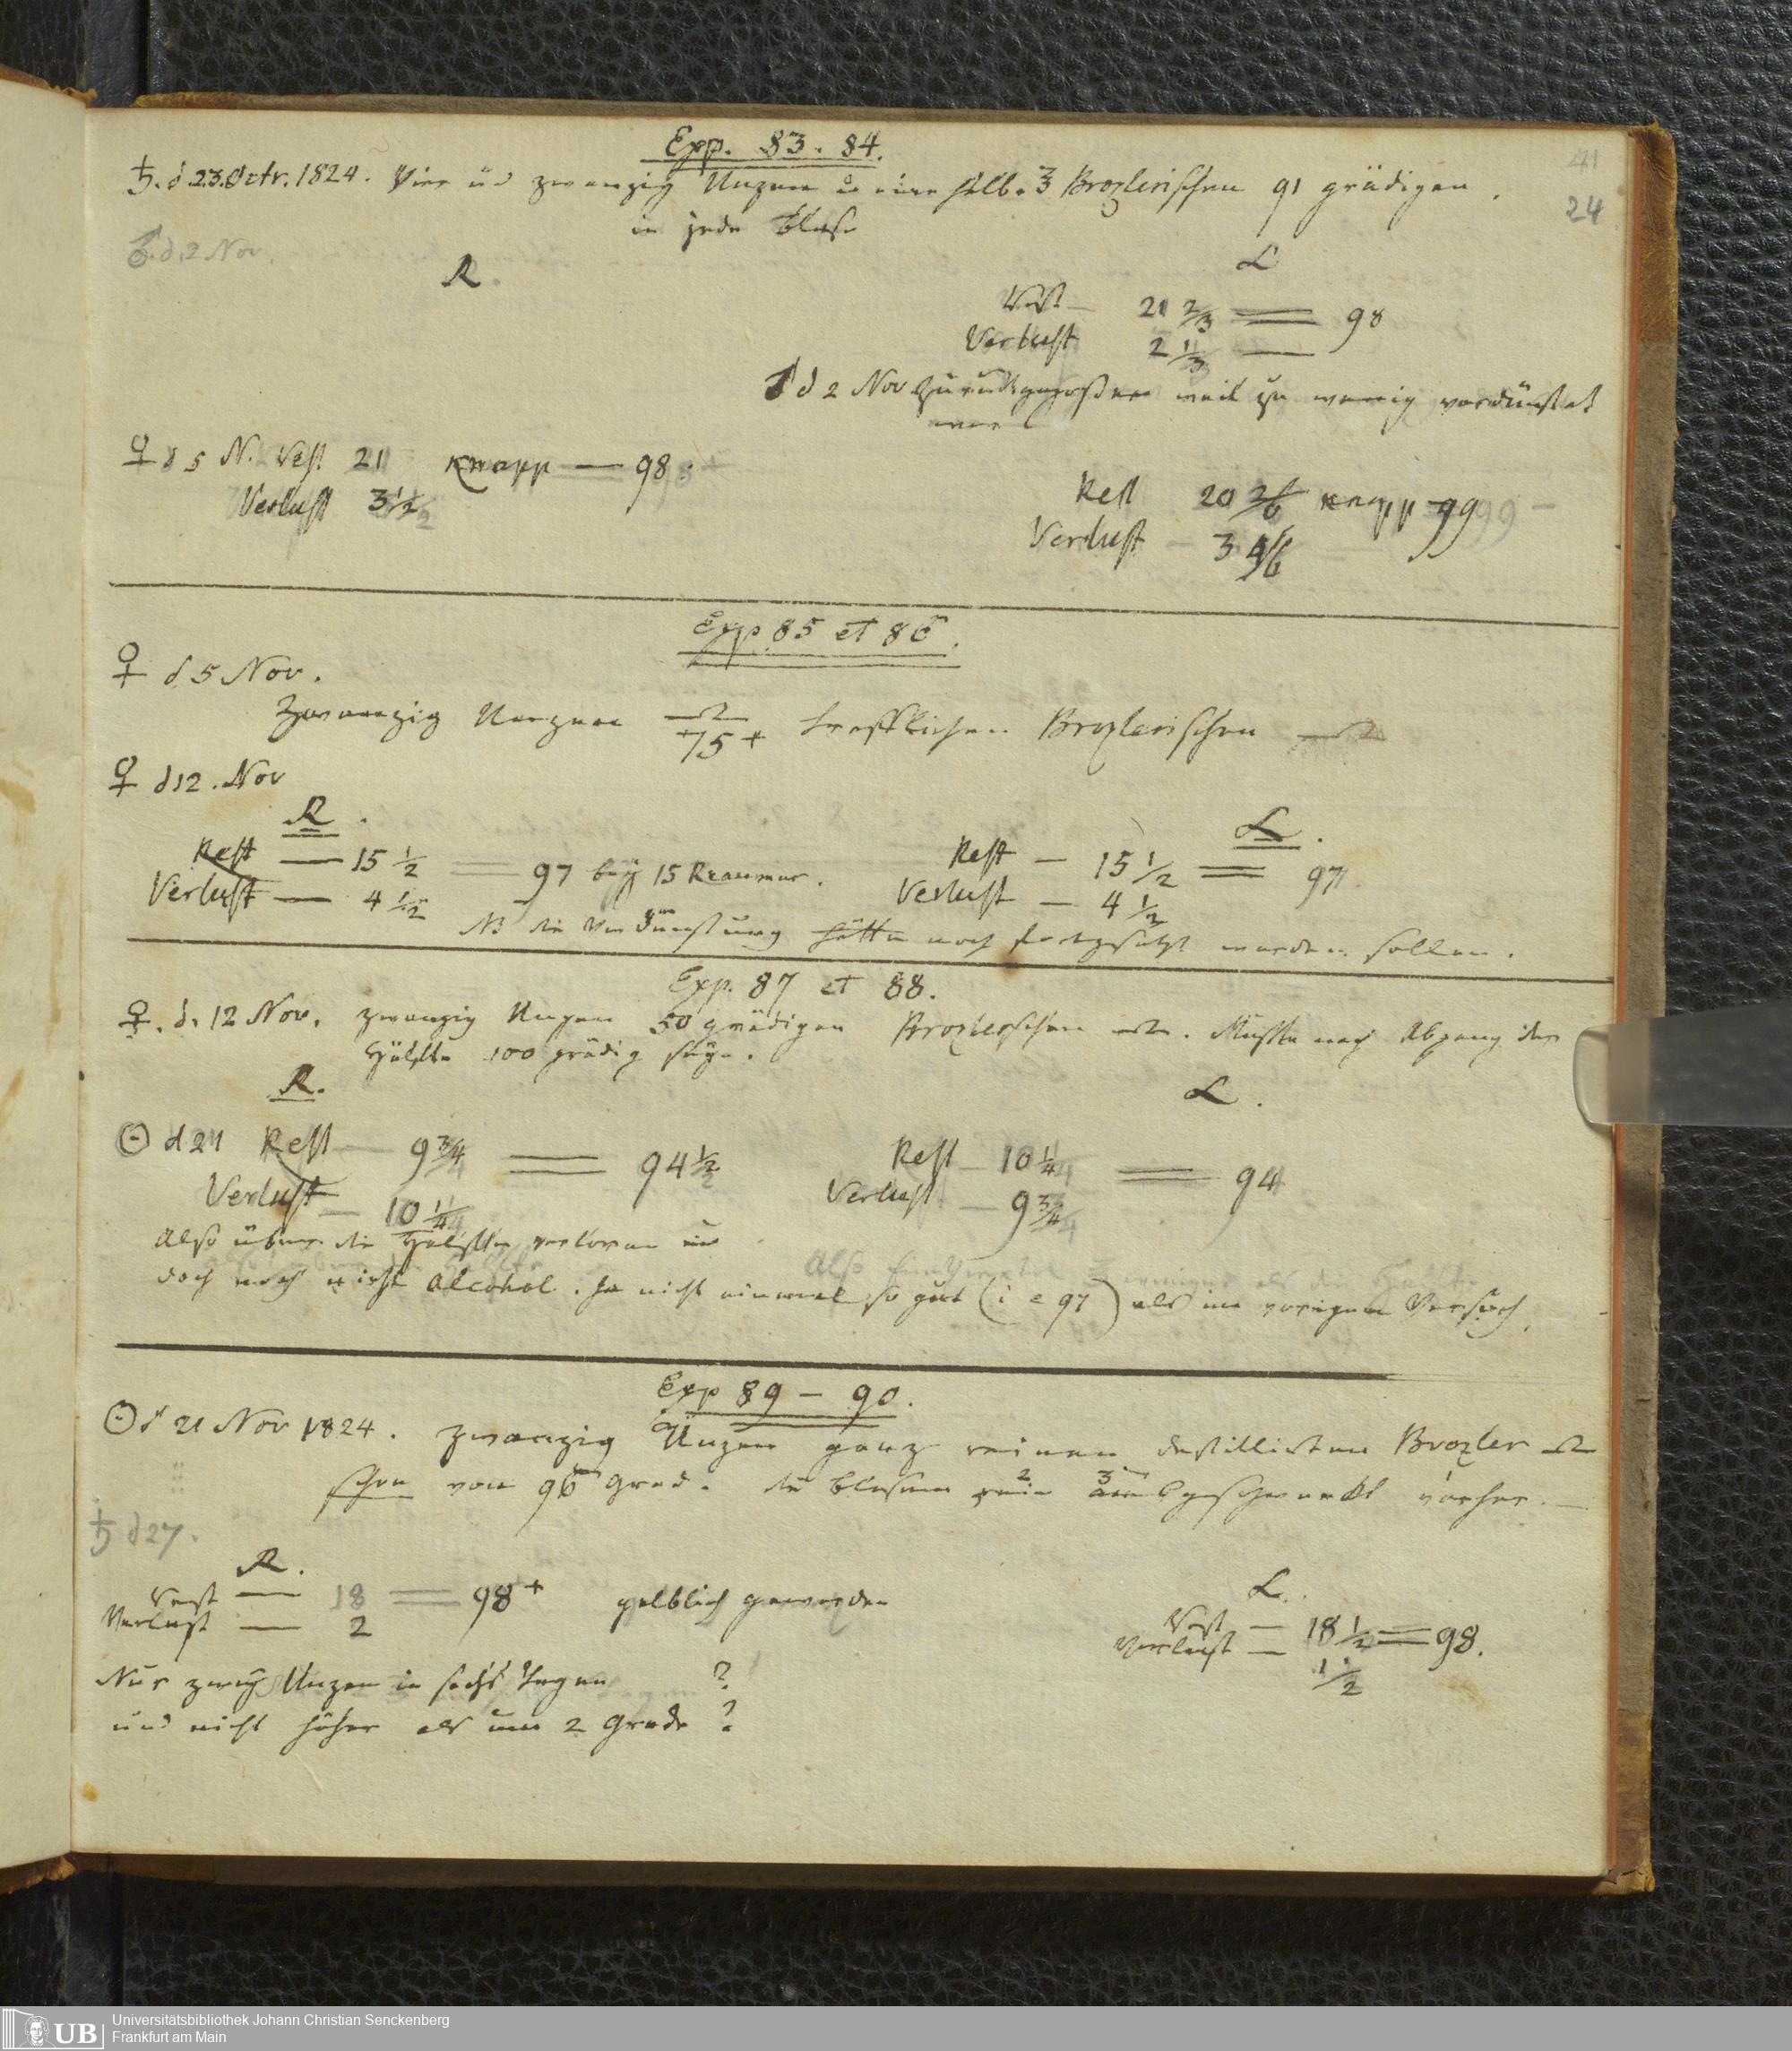 Expp. 83. 84.
41
♄. d. 23. Octr. 1824. Vier und zwanzig Unzen u eine halbe ℥ Brozlerischen 91 grädigen.
24
in jede Blase
♂ d. 2 Nov.
R.
L
Rest — 21 2/3 = 98
Verlust 2 1/3 —
♂ d 2 Nov zurückgegossen weil zu wenig verdünstet
war
♀ d 5 N. Rest 21 knapp — 98.
Verlust 3 1/2
Rest 20 2/6 knapp 99
Verlust — 3 4/6
Exp. 85 et 86.
♀ d. 5 Nov.
Zwanzig Unzen 75+ trefflichen Brozlerischen
♀ d 12. Nov
R.
L.
Rest — 15 1/2 = 97 bey 15 Reaumur.
Rest — 15 1/2 = 97.
Verlust — 4 1/2
Verlust — 4 1/2
NB die Verdünstung hätte noch fortgesetzt werden sollen.
Exp. 87 et 88.
♀. d. 12 Nov. zwanzig Unzen 50 grädigen Brozlerschen. Müßte nach Abgang der
Hälfte 100 grädig seyn.
R.
L.
☉ d 21 Rest — 9 3/4 = 94 1/2
Rest — 10 1/4 = 94
Verlust — 10 1/4
Verlust — 9 3/4
Also über die Hälfte verloren und
Also weniger als die Hälfte
doch noch nicht Alcohol. Ja nicht einmal so gut (i e 97) als im vorigen Versuch.
Exp 89 — 90.
☉ d 21 Nov 1824. Zwanzig Unzen ganz reinen destillirten Brozler
schen von 96 Grad. die Blasen rein ausgeschwenkt vorher.—
♄ d 27.
R.
L.
Rest — 18 = 98+ gelblich geworden
Rest — 18 1/2 = 98.
Verlust — 2
Verlust — 1 1/2
Nur zwey Unzen in sechs Tagen ?
und nicht höher als um 2 Grade ?
Universitätsbibliothek Johann Christian Senckenberg
UB
Frankfurt am Main